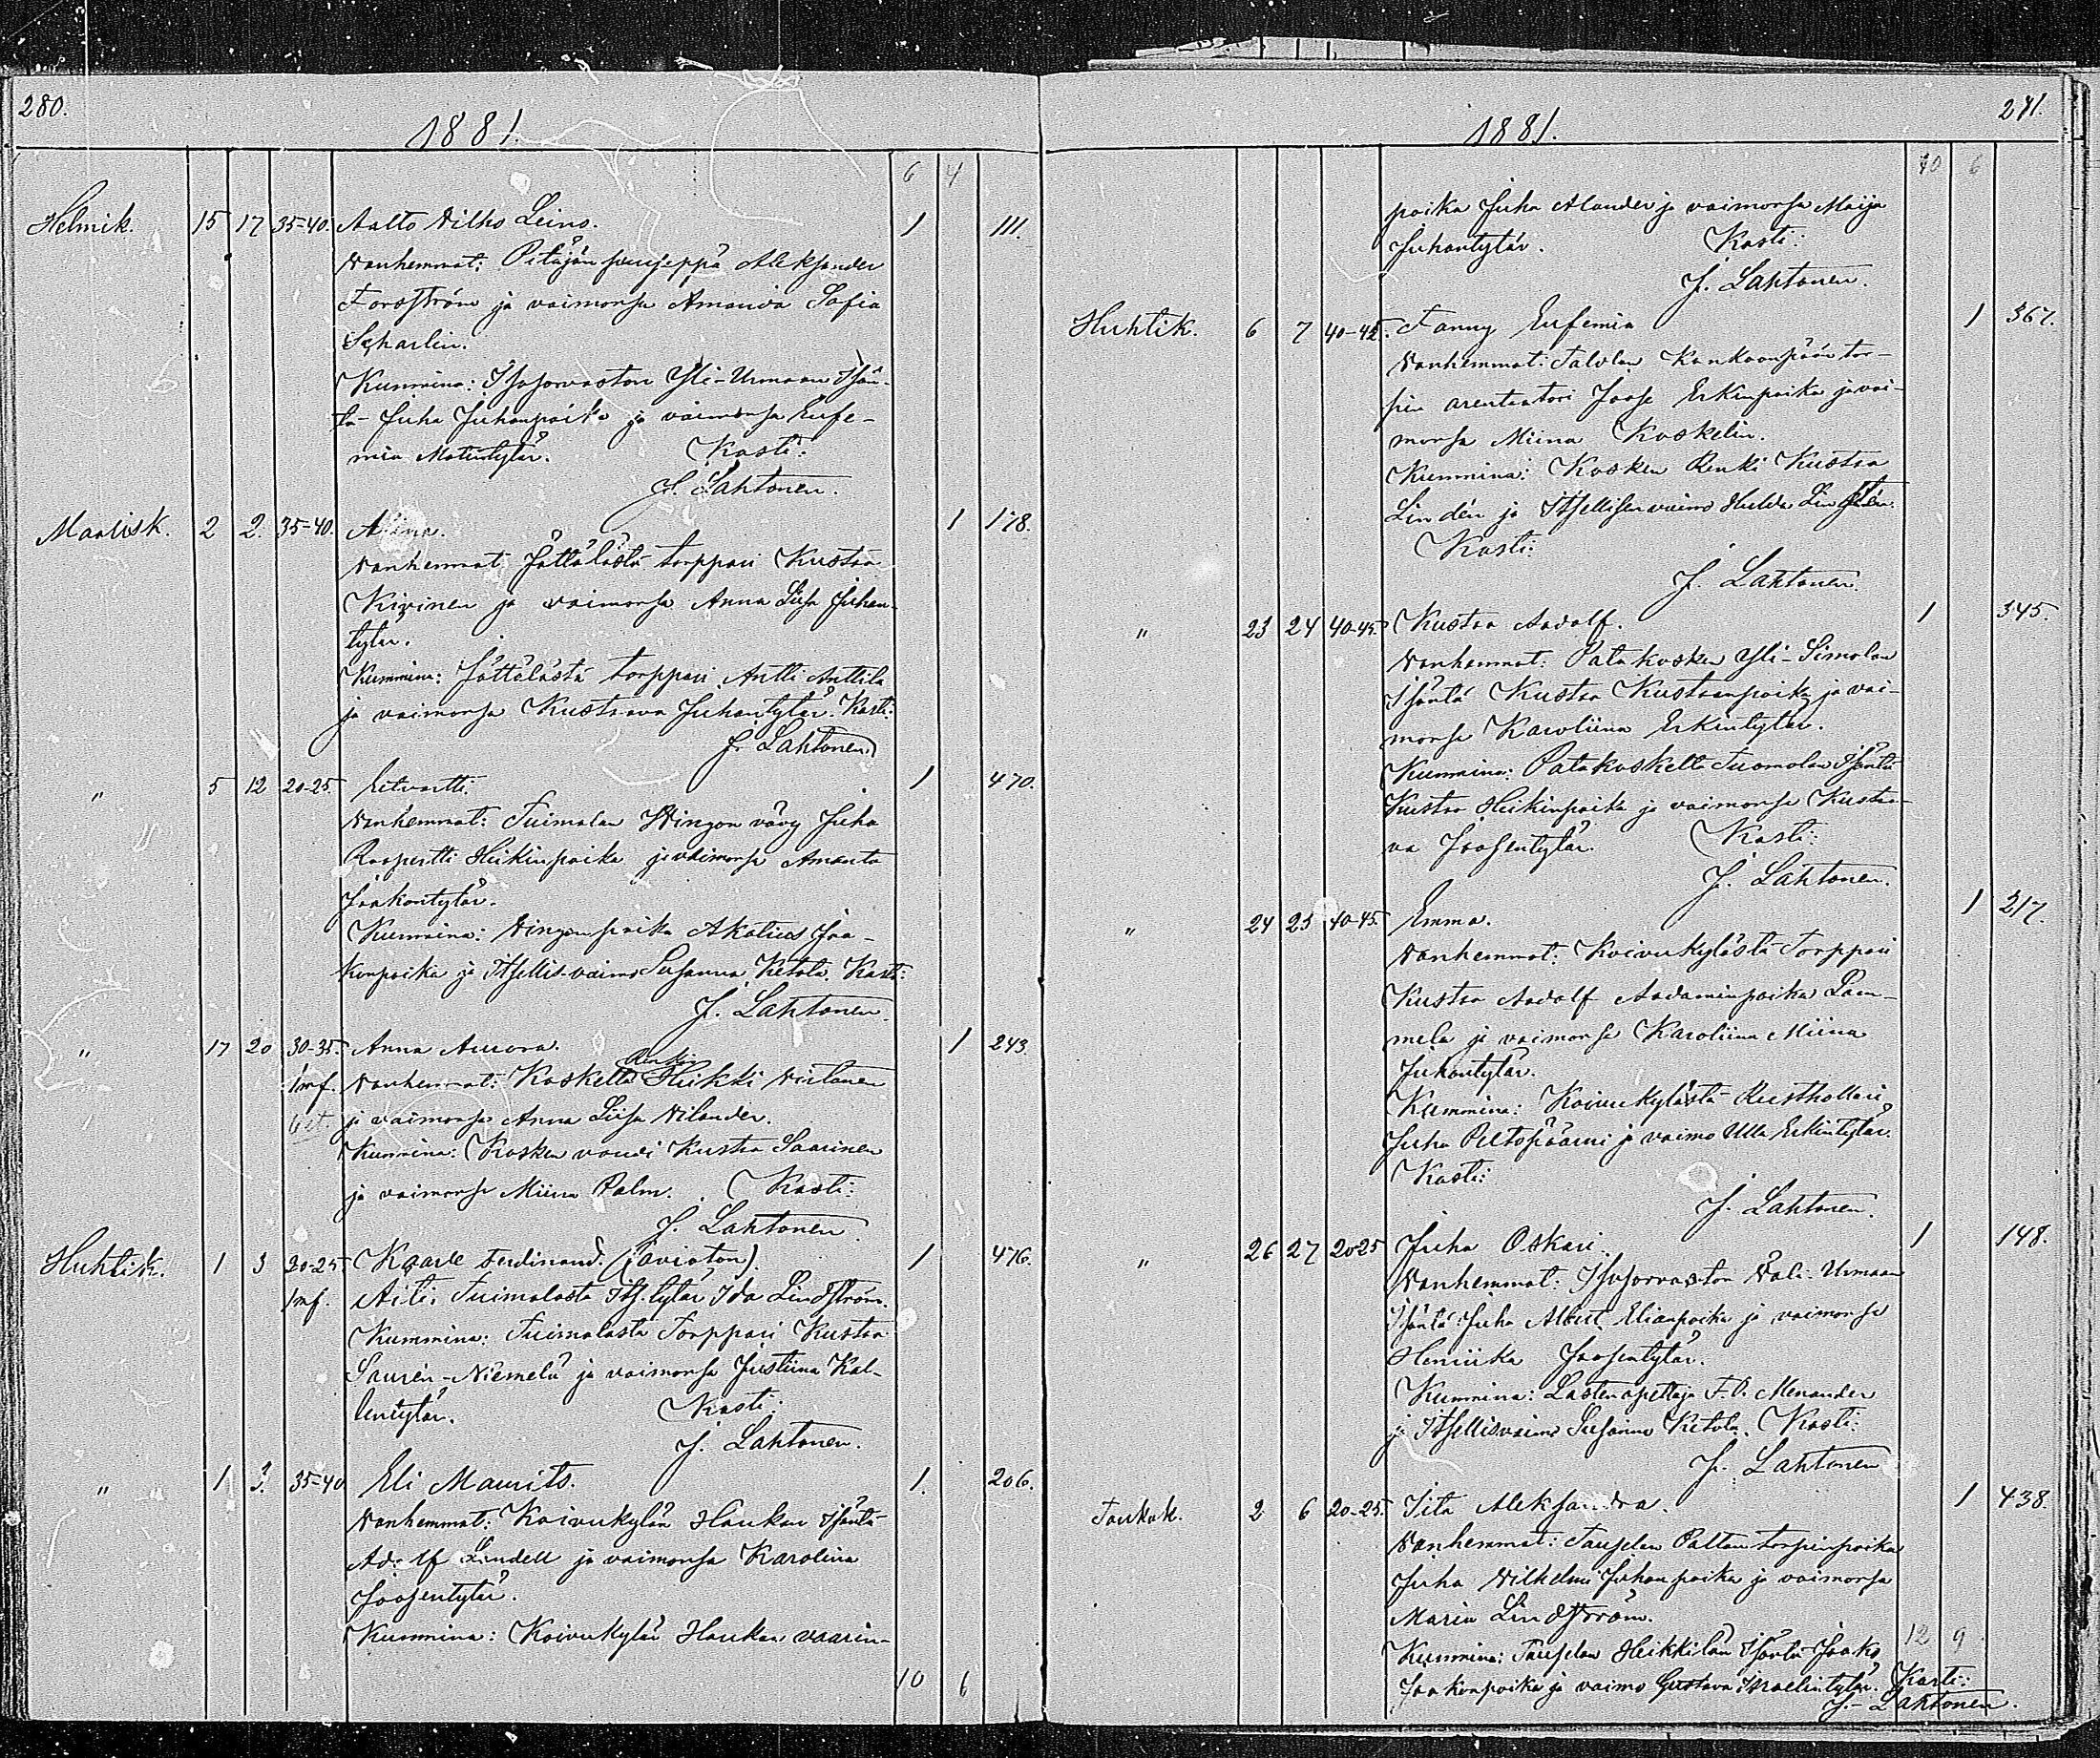 280.
1881.
6 4
Helmik. 15 17 35-40. Aalto Vilho Leino. 1 111.
Vanhemmat: Pitäjän Aleksander
Forsström ja vaimonsa Amanda Sofia
Scharlin.
Kummina: Isosorvaston Yli-Urmaan Isän-
tä Juha Juhanpoika ja vaimonsa Eufe-
mia Matintytär. Kasti:
J. Lahtonen.
Maalisk. 2 2. 35-40. Aina. 1 178.
Vanhemmat: Jättälästä torppari Kustaa
Kivinen ja vaimonsa Anna Liisa Juhan-
tytär.
Kummina: Jättälästä torppari Antti Anttila
ja vaimonsa Kustaava Juhantytär. Kasti:
J. Lahtonen.
" 5 12 20-25. Eetvartti. 1 470.
Vanhemmat: Tuimalan Vingon vävy Juha
Roopertti Heikinpoika ja vaimonsa Amanta
Jaakontytär.
Kummina: Vingon poika Akatius Jaa-
konpoika ja Itsellis-vaimo Susanna Ketola. Kasti:
J. Lahtonen.
" 17 20 30-35. Anna Aurora. 1 243.
Renki
1mf. Vanhemmat: Koskelta Heikki Virtanen
ja vaimonsa Anna Liisa Vilander.
Kummina: Kosken vouti Kustaa Saarinen
ja vaimonsa Miina Palm. Kasti:
J. Lahtonen.
Huhtik. 1 3 20-25. Kaarle Ferdinand. (avioton). 1 476.
1mf. Äiti: Tuimalasta Its. tytär Ida Lindström.
Kummina: Tuimalasta Torppari Kustaa
Saurén-Niemelä ja vaimonsa Justiina Kal-
lentytär. Kasti:
J. Lahtonen.
" 1 3. 35-40 Eli Maurits. 1. 206.
Vanhemmat: Koivukylän Haukan Isäntä
Adolf Lindell ja vaimonsa Karolina
Joosentytär.
Kummina: Koivukylän Haukan vaarin-
10 6
281.
1881.
10 6
poika Juha Alander ja vaimonsa Maija
Juhantytär. Kasti:
J. Lahtonen.
Huhtik. 6 7 40-45. Fanny Eufemia 1 367.
Vanhemmat: Talolan Kankaanpään tor-
pin arentaatori Joose Erkinpoika ja vai-
monsa Miina Koskelin.
Kummina: Kosken Renki Kustaa
Lindén ja Itsellisen vaimo Hulda Lindén.
Kasti:
J. Lahtonen.
" 23 24 40-45. Kustaa Aadolf. 1 345.
Vanhemmat: Patakosken Yli-Simolan
Isäntä Kustaa Kustaanpoika ja vai-
monsa Karoliina Erkintytär.
Kummina: Patakoskelta Tuomolan Isäntä
Kustaa Heikinpoika ja vaimonsa Kustaa-
va Joosentytär. Kasti:
J. Lahtonen.
" 24 25 40-45. Emma. 1 217.
Vanhemmat: Koivukylästä Torppari
Kustaa Aadolf Aadaminpoika Lam-
mela ja vaimonsa Karoliina Miina
Juhontytär.
Kummina: Koivukylästä Rusthollari
Juha Peltopäärni ja vaimo Ulla Erkintytär.
Kasti:
J. Lahtonen.
" 26 27 20-25 Juha Oskari. 1 148.
Vanhemmat: Isosorvaston Väli-Urmaan
Isäntä Juha Albert Elianpoika ja vaimonsa
Heniika Joosentytär.
Kummina: Lastenopettaja F. O. Menander
ja Itsellisvaimo Susanna Ketola. Kasti:
J. Lahtonen
Toukok. 2 6 20-25. Iita Aleksandra. 1 438.
Vanhemmat: Tauselan Pallan torpinpoika
Juha Vilhelmi Juhanpoika ja vaimonsa
Maria Lindström.
Kummina: Tauselan Heikkilän Isäntä Jaako 12 9
Jaakonpoika ja vaimo Gustava Israelintytär. Kasti:
J. Lahtonen.